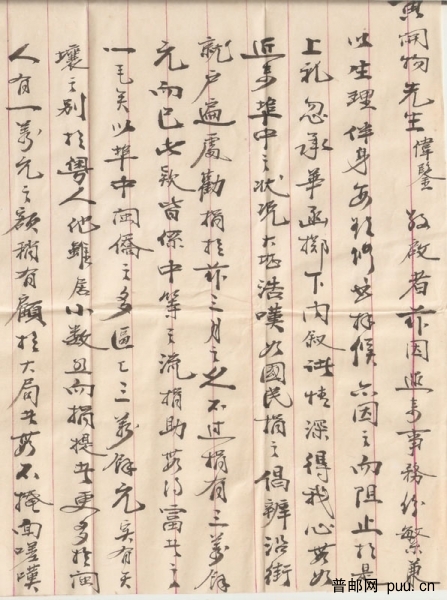 開物先生偉鑒 敬啟者茲因邇來事務紛繁兼
以生理伴身每欲修書拜候亦因之而阻止於是
上礼忽承華函擲下內叙詳情深得我心
近來埠中之狀況大堪浩嘆如國民捐之倡辦沿街
就户遍處勸捐於茲三月之久不过捐有三萬餘
元而已此款皆係中等之流捐助富者之
一毛矣以埠中閩僑之多區區三萬餘元实有天
壤之別於粵人他雖居小数且而捐提者更多於閩
人有一萬元之額稍有顧於大局者不掩面嗟嘆
普邮网 puu.cn